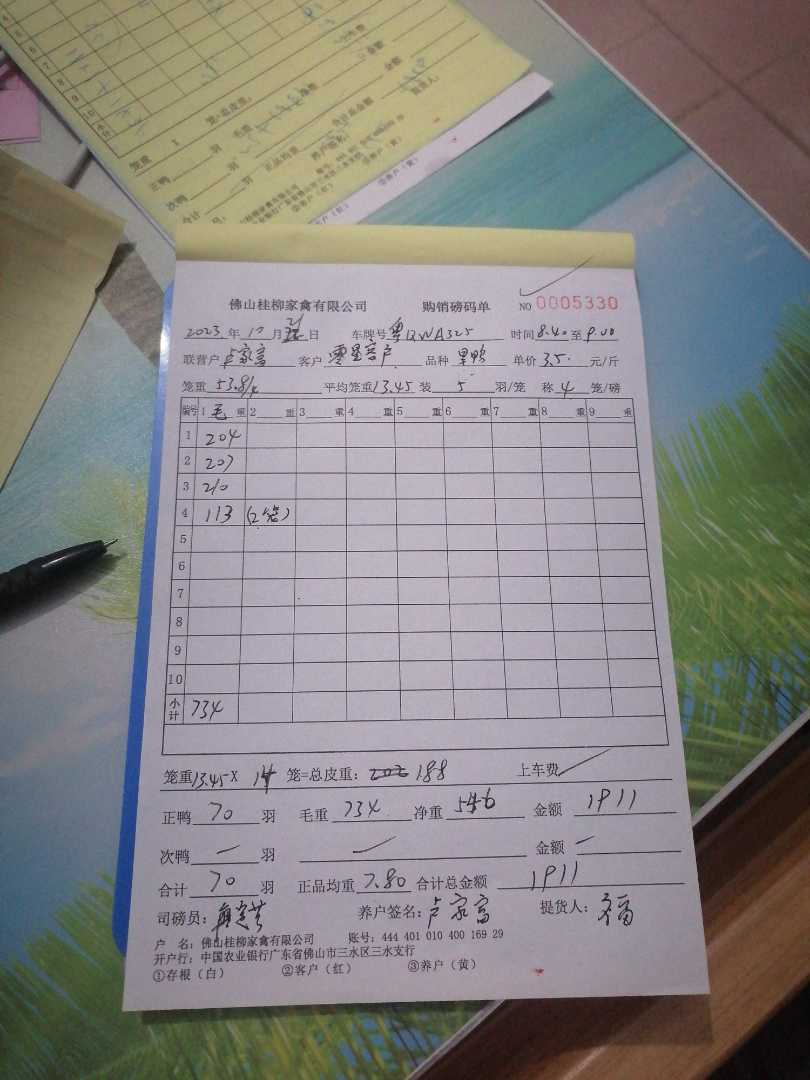 佛山桂柳家禽有限公司 购销磅码单 NO 0005330
2023 年 10 月 21 日 车牌号 粤QWA325 时间 8.40 至 9.00
联营户 卢家富 客户 零星客户 品种 果鸭 单价 3.5 元/斤
笼重 53.8/4 平均笼重 13.45 装 5 羽/笼 称 4 笼/磅
编号 1 毛 重 2 重 3 重 4 重 5 重 6 重 7 重 8 重 9 重
1 204
2 207
3 210
4 113 (2笼)
5
6
7
8
9
10
小计 734
笼重 13.45 X 14 笼=总皮重: 188 上车费
正鸭 70 羽 毛重 734 净重 546 金额 1911
次鸭 — 羽 金额 —
合计 70 羽 正品均重 7.80 合计总金额 1911
司磅员: 养户签名: 卢家富 提货人:
户 名: 佛山桂柳家禽有限公司 账号: 444 401 010 400 169 29
开户行: 中国农业银行广东省佛山市三水区三水支行
①存根(白) ②客户(红) ③养户(黄)